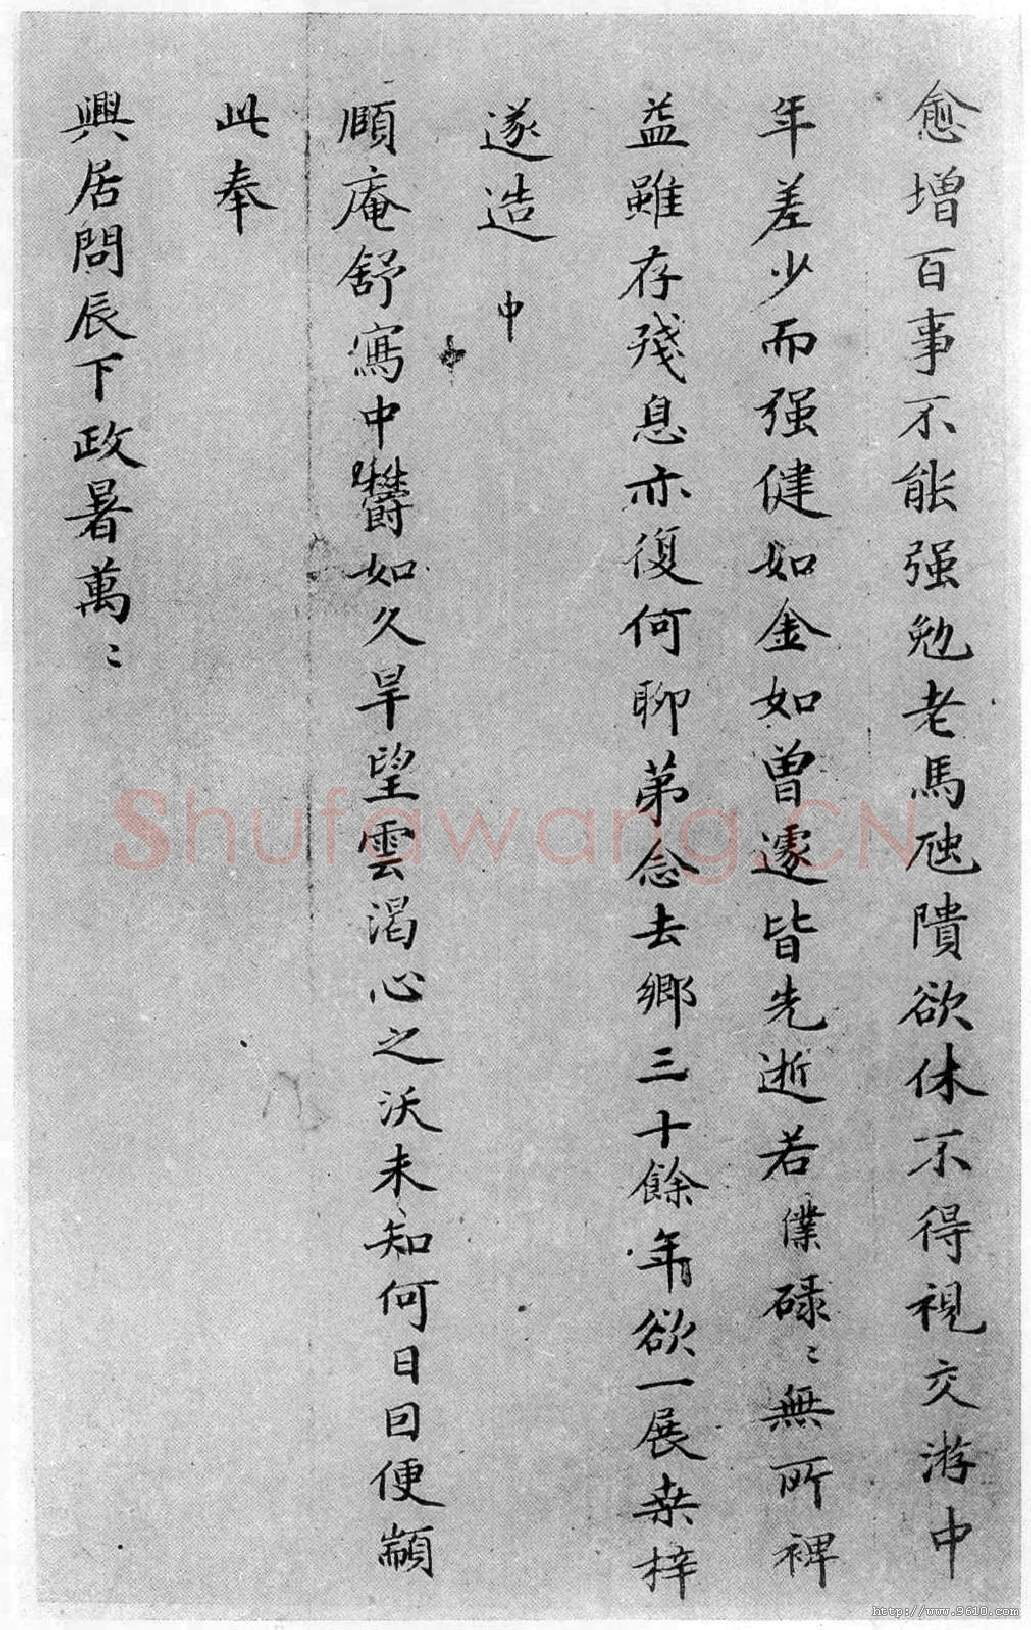 愈增百事不能强勉老馬虺隤欲休不得視交游中
年差少而强健如金如曾遽皆先逝若僕碌〻無所裨
益雖存殘息亦復何聊弟念去鄉三十餘年欲一展桒梓
遂造
中
頤庵舒寫中欝如久旱望雲渴心之沃未知何日回便顓
此奉
興居問辰下政暑萬〻
Shufawang.CN
http://www.9610.com